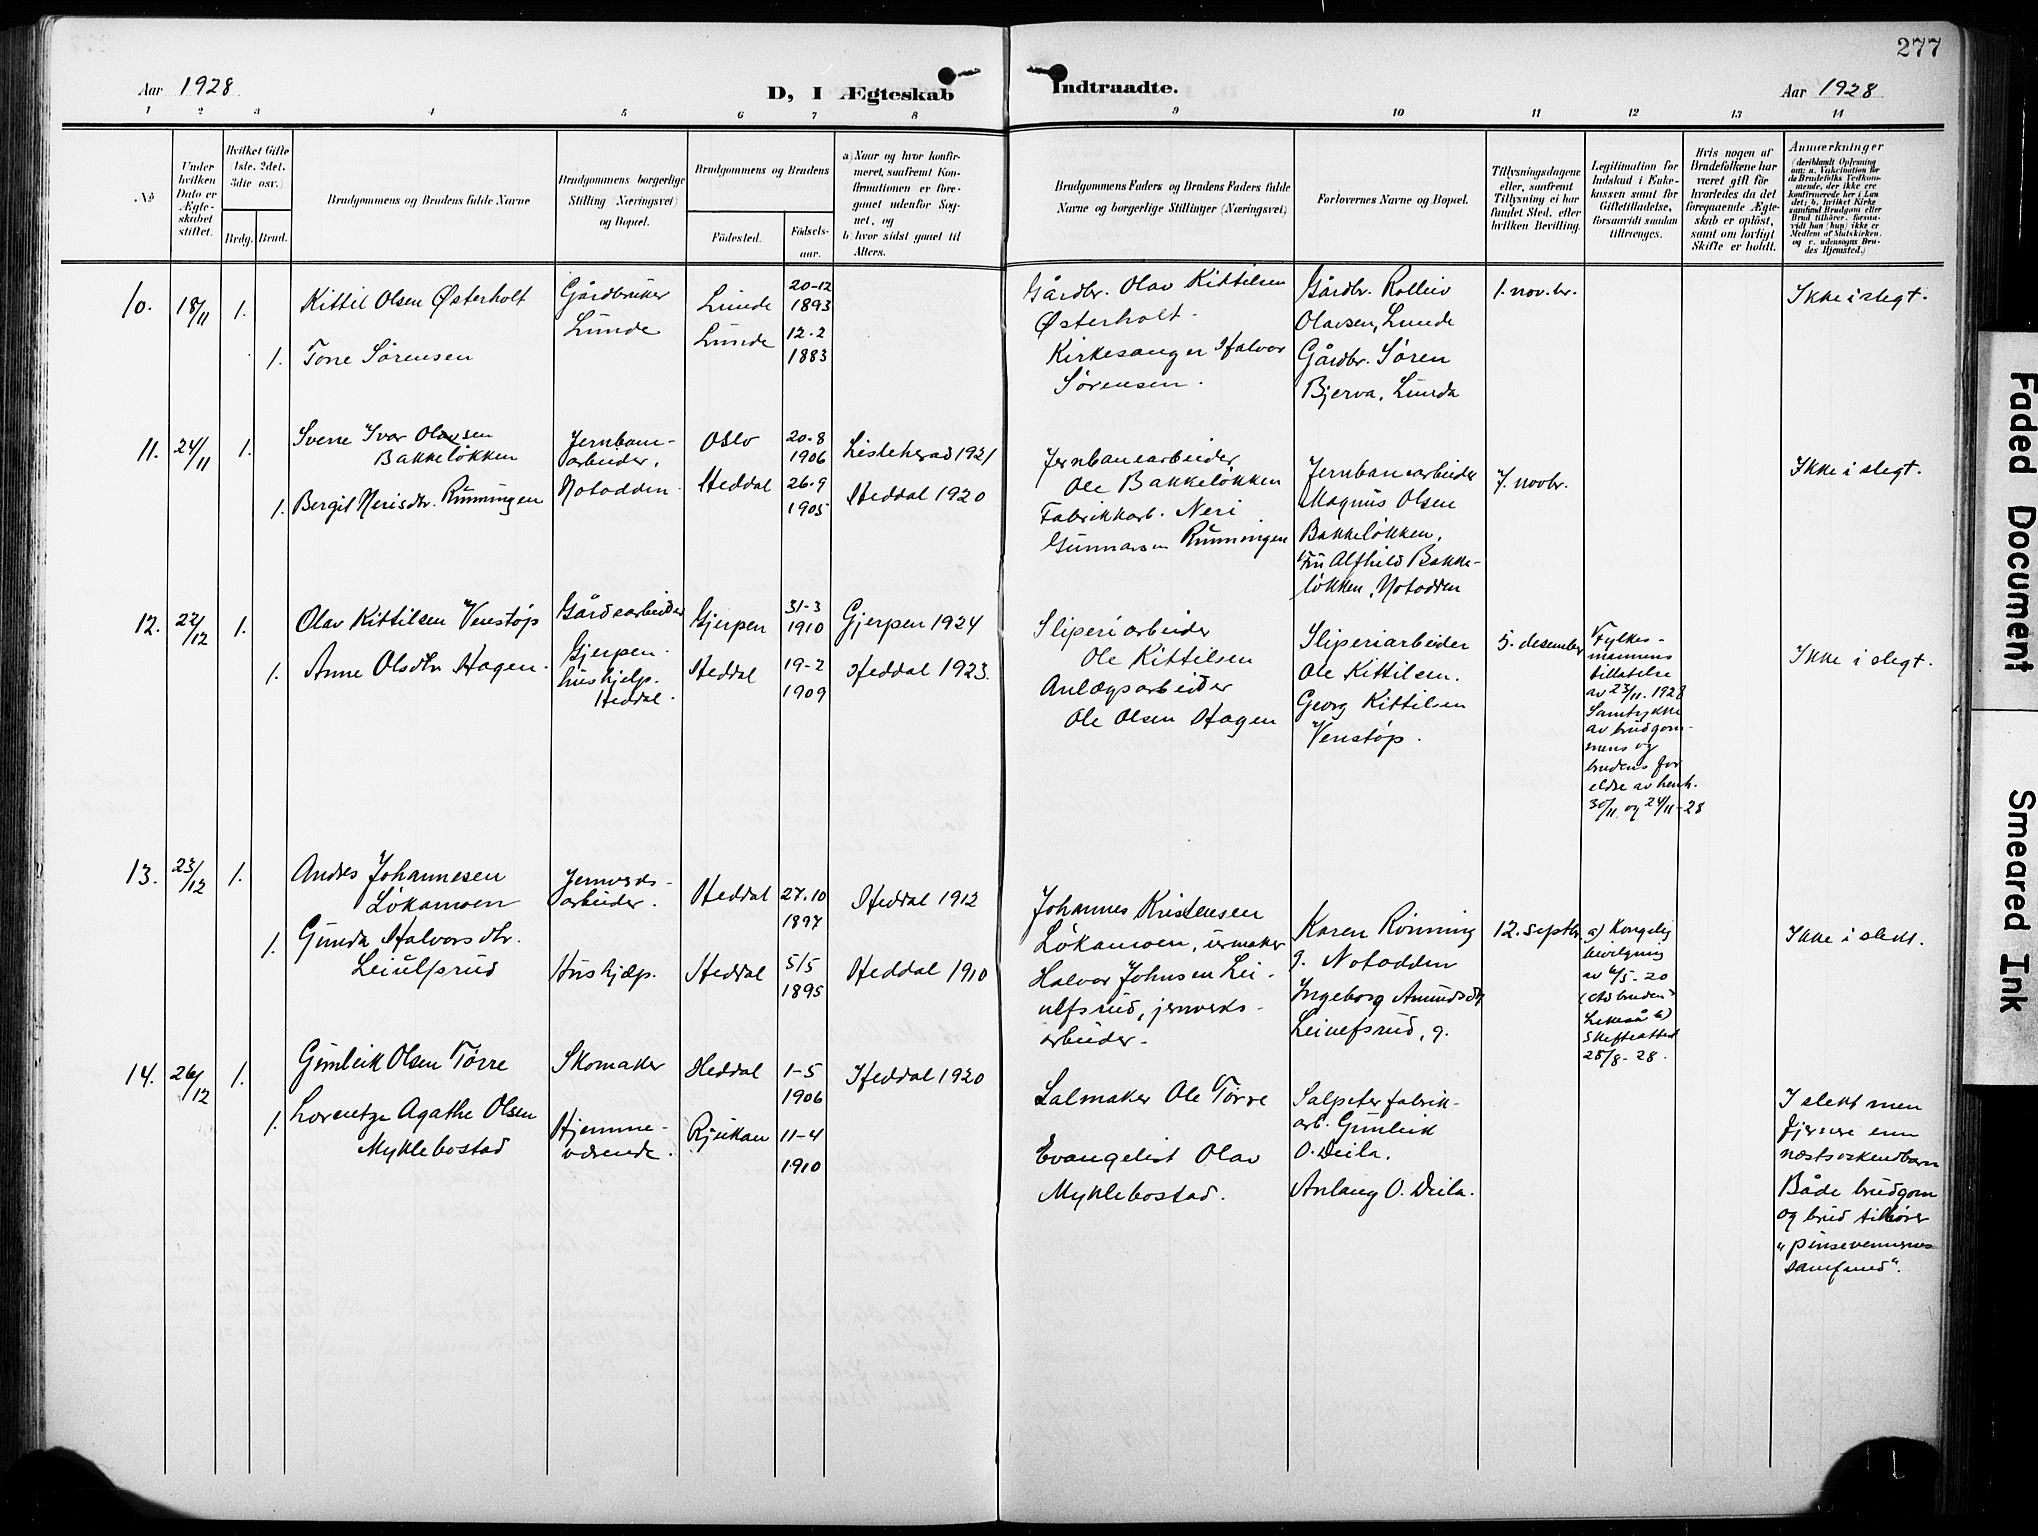 277
Aar 1928
D, I Ægteskab Indtraadte.
Aar 1928
1 2 3 4 5 6 7 8 9 10 11 12 13 14
No
Under hvilken Dato er Ægteskabet stiftet.
Hvilket Gifte (1ste. 2det. 3die osv.)
Brdg. Brud.
Brudgommens og Brudens fulde Navne
Brudgommens borgerlige Stilling (Næringsvei) og Bopæl.
Brudgommens og Brudens
Födested.
Födselsaar.
a) Naar og hvor konfirmeret, saafremt Konfirmationen er foregaaet udenfor Sognet, og
b) hvor sidst gaaet til Alters.
Brudgommens Faders og Brudens Faders fulde Navne og borgerlige Stillinger (Næringsvei)
Forlovernes Navne og Bopæl.
Tillysningsdagene eller, saafremt Tillysning ei har fundet Sted, efter hvilken Bevilling.
Legitimation for Indskud i Enkekassen samt for Giftetilladelse, forsaavidt saadan tiltrænges.
Hvis nogen af Brudefolkene har været gift för hvorledes da det foregaaende Ægteskab er oplöst, samt om lovligt Skifte er holdt.
Anmærkninger
(deriblandt Oplysning om: a. Vakcination for de Brudefolks Vedkommende, der ikke ere konfirmerede her i Landet; b. hvilket Kirkesamfund Brudgom eller Brud tilhörer, forsaavidt han (hun) ikke er Medlem af Statskirken, og c. udensogns Brudes Hjemsted.)
10.
18/11
1.
Kittil Olsen Østerholt
Gårdbruker
Lunde
Lunde
20-12
1893
Gårdbr. Olav Kittilsen
Østerholt.
Gårdbr. Rolleiv
Olavsen, Lunde
1. nov.br.
Ikke i slegt.
1.
Tone Sørensen
Lunde
12-2
1883
Kirkesanger Halvor
Sørensen.
Gårdbr. Søren
Bjerva, Lunde
11.
24/11
1.
Sverre Ivar Olavsen
Bakkeløkken
Jernbane-
arbeider.
Notodden.
Oslo
20-8
1906
Lisleherad 1921
Jernbanearbeider
Ole Bakkeløkken
Jernbanearbeider
Magnus Olsen
Bakkeløkken,
7. novbr.
Ikke i slegt.
1.
Bergit Nerisdtr. Rünningen
Heddal
26-9
1905
Heddal 1920
Fabrikkarb. Neri
Gunnarsen Rünningen
Fru Alfhild Bakke-
løkken, Notodden
12.
22/12
1.
Olav Kittilsen Venstøp
Gårdsarbeider
Gjerpen.
Gjerpen
31-3
1910
Gjerpen 1924
Sliperiarbeider
Ole Kittilsen
Sliperiarbeider
Ole Kittilsen.
5. desember
Fylkes-
mannens
tillatelse
av 23/11. 1928
Samtykke
av brudgom-
mens og
brudens for
eldre av henh.
30/11 og 24/11-28
Ikke i slegt.
1.
Anne Olsdtr. Hagen.
hushjelp.
Heddal.
Heddal
19-2
1909
Heddal 1923.
Anlægsarbeider
Ole Olsen Hagen
Georg Kittilsen
Venstøp.
13.
23/12
1.
Andres Johannesen
Løkamoen
Jernverds-
arbeider.
Heddal
27.10
1897
Heddal 1912
Johannes Kristensen
Løkamoen, urmaker
Karen Rönning
g. Notodden
12. septbr.
a) Kongelig
bevilgning
av 6/5-20
b)
Skifteattest
28/8-28.
Ikke i slekt.
1.
Gunda Halvorsdtr.
Leiulfsrud
Hushjælp.
Heddal
5/5
1895
Heddal 1910
Halvor Johnsen Lei-
ulfsrud, jernverks-
arbeider.
Ingeborg Amundsdtr
Leiulfsrud, g.
14.
26/12
1.
Gunleik Olsen Tørre
Skomaker
Heddal
1-5
1906
Heddal 1920
Salmaker Ole Tørre
Salpeterfabrik-
arb. Gunleik
O. Deila.
I slekt men
fjernere enn
næstsøskendbarn
1.
Lorentze Agathe Olsen
Myklebostad
Hjemme-
værende.
Rjukan
11-4
1910
Evangelist Olav
Myklebostad.
Anlaug O. Deila.
Både brudgom
og brud tilhører
"pinsevennernes
samfund".
Faded Document
Smeared Ink